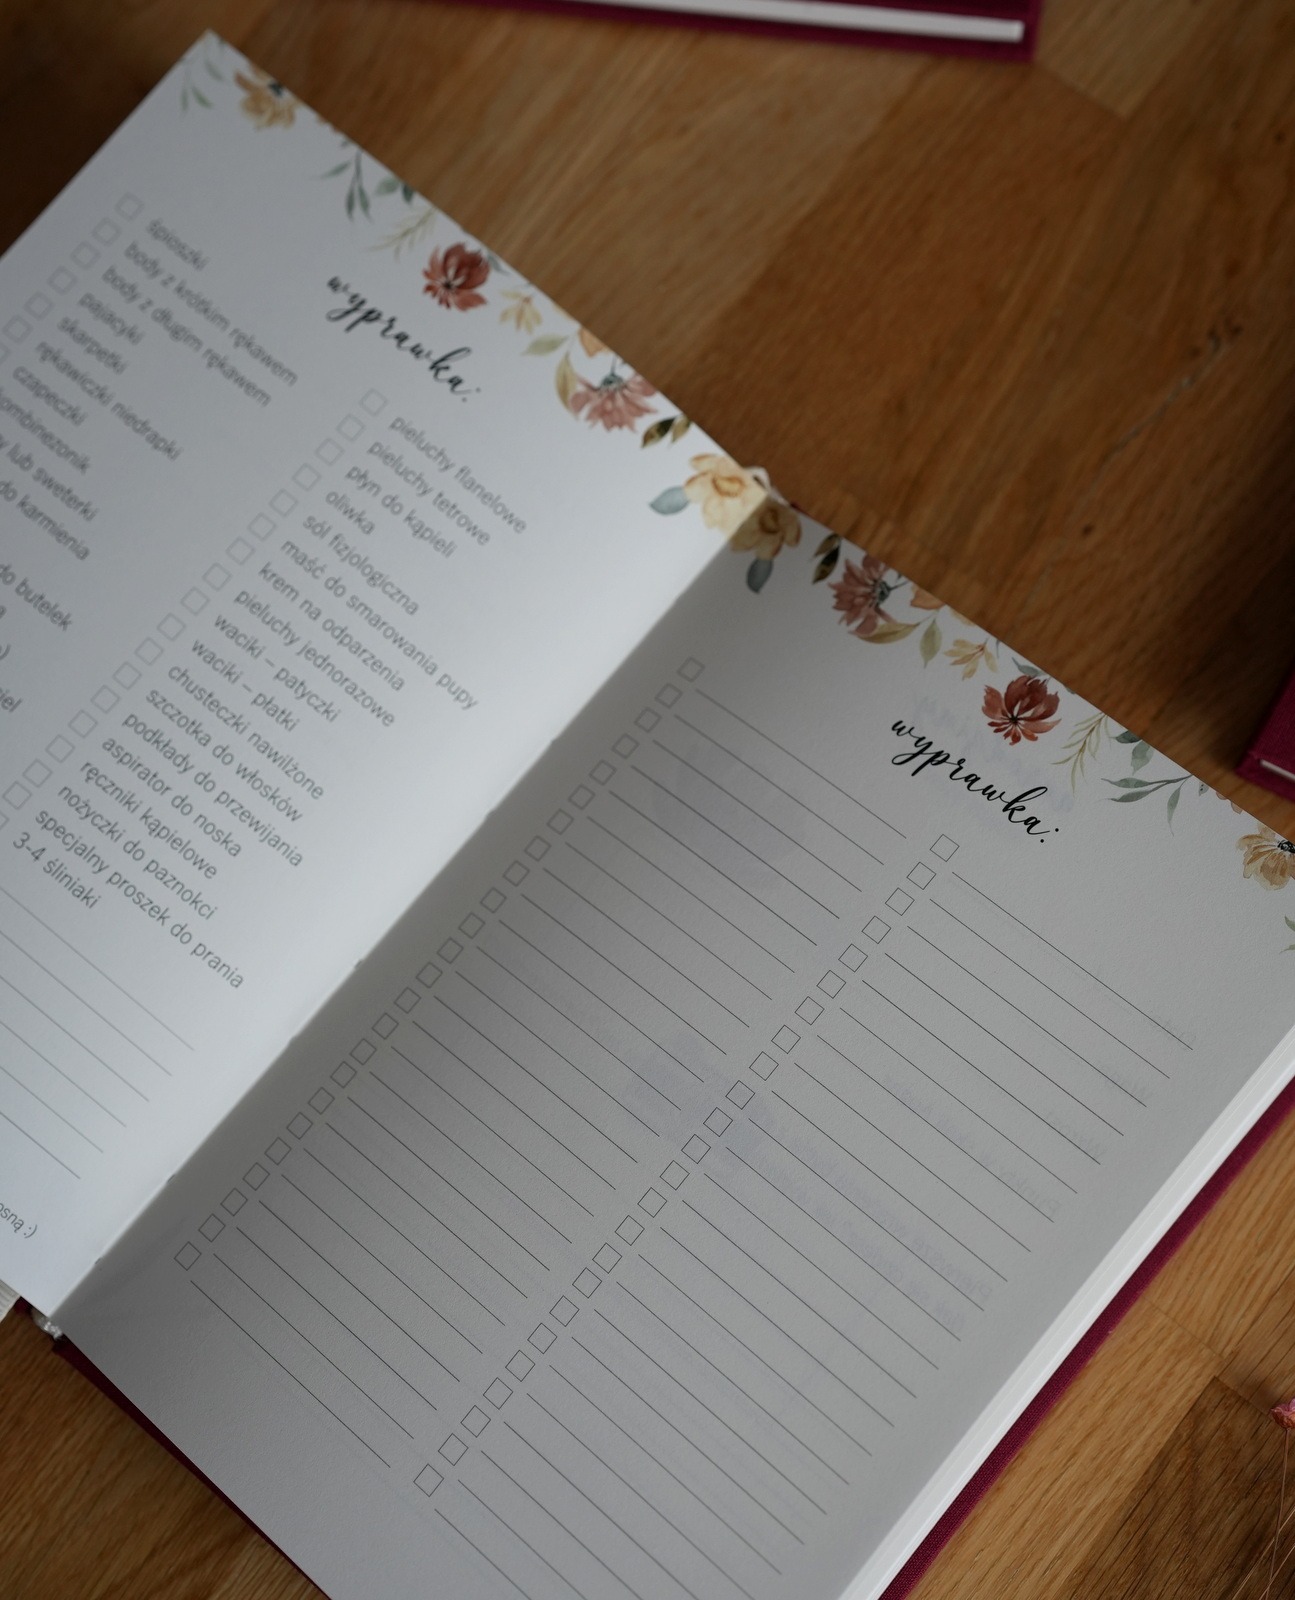 wyprawka:
śpioszki
body z krótkim rękawem
body z długim rękawem
pajacyki
skarpetki
rękawiczki niedrapki
czapeczki
kombinezonik
lub sweterki
do karmienia
do butelek
pieluchy flanelowe
pieluchy tetrowe
płyn do kąpieli
oliwka
sól fizjologiczna
maść do smarowania pupy
krem na odparzenia
pieluchy jednorazowe
waciki – patyczki
waciki – płatki
chusteczki nawilżone
szczotka do włosków
podkłady do przewijania
aspirator do noska
ręczniki kąpielowe
nożyczki do paznokci
specjalny proszek do prania
3-4 śliniaki
:)
wyprawka: